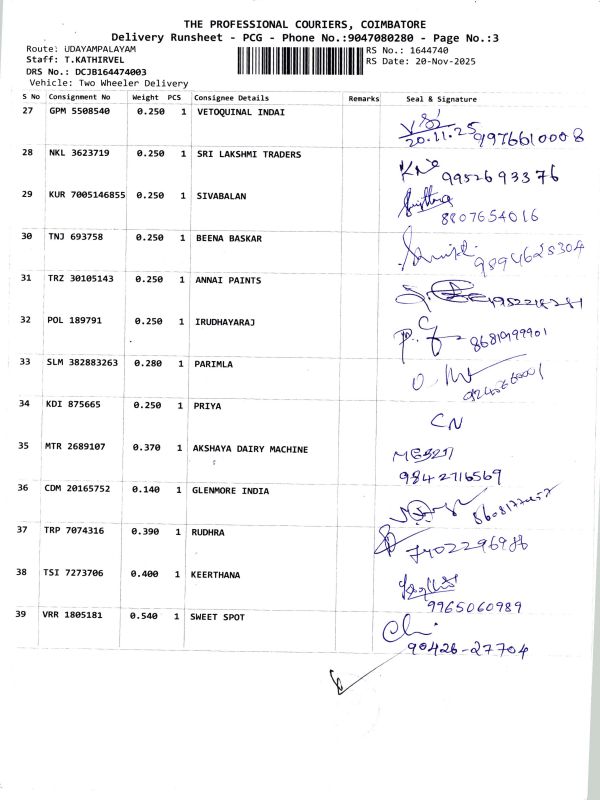 THE PROFESSIONAL COURIERS, COIMBATORE
Delivery Runsheet - PCG - Phone No.:9047080280 - Page No.:3
Route: UDAYAMPALAYAM RS No.: 1644740
Staff: T.KATHIRVEL RS Date: 20-Nov-2025
DRS No.: DCJB164474003
Vehicle: Two Wheeler Delivery
S No Consignment No Weight PCS Consignee Details Remarks Seal & Signature
27 GPM 5508540 0.250 1 VETOQUINAL INDAI
20.11.25 9976610008
28 NKL 3623719 0.250 1 SRI LAKSHMI TRADERS
9952693376
29 KUR 7005146855 0.250 1 SIVABALAN
8807654016
30 TNJ 693758 0.250 1 BEENA BASKAR
9894628304
31 TRZ 30105143 0.250 1 ANNAI PAINTS
32 POL 189791 0.250 1 IRUDHAYARAJ
8681999901
33 SLM 382883263 0.280 1 PARIMLA
34 KDI 875665 0.250 1 PRIYA
CN
35 MTR 2689107 0.370 1 AKSHAYA DAIRY MACHINE
9842716569
36 CDM 20165752 0.140 1 GLENMORE INDIA
37 TRP 7074316 0.390 1 RUDHRA
38 TSI 7273706 0.400 1 KEERTHANA
9965060989
39 VRR 1805181 0.540 1 SWEET SPOT
90426-27704